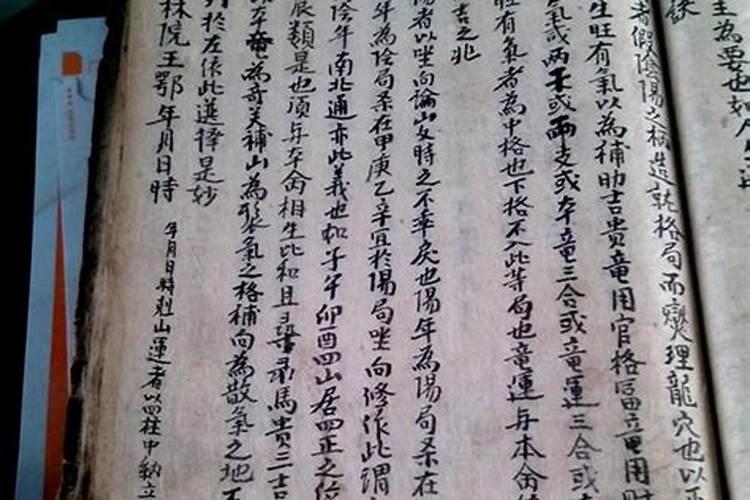 主為要也如人生
訣
者假陰陽之柄造就格局而燮理龍穴也以
生旺有氣以為補助吉貴竜用官格富竜用財
氣或兩干或兩支或本竜三合或竜運三合或
旺有氣者為中格也下格不入此等局也竜運与本命
吉之兆
陽者以坐向論山女時之不乖戾也陽年為陽局又在
年為陰局系在甲庚乙辛宜於陽局坐向修作此謂
陰年南北通亦此義也如子午卯酉四山居四正之位
辰類是也須与本命相生比和且尋彔馬貴三吉
本竜為奇关補山為聚氣之格補向為散氣之地
列於左依此選擇是妙
林院王鄂年月日時
年月日時尅山運者以四柱中納